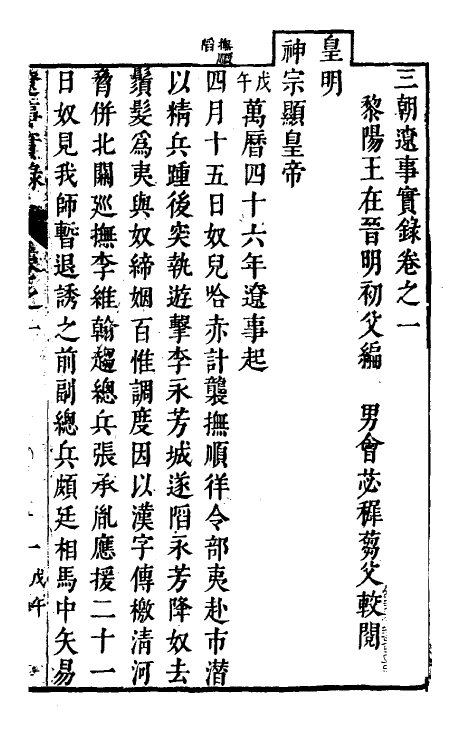 三朝遼事實錄卷之一
黎陽王在晉明初父編　男會苾穉芻父較閱
皇明
神宗顯皇帝
戊午萬曆四十六年遼事起
撫順陷
四月十五日奴兒哈赤計襲撫順徉令部夷赴市潛
以精兵踵後突執遊擊李永芳城遂陷永芳降奴去
鬚髮爲夷與奴締姻百惟調度因以漢字傳檄清河
脅併北關廵撫李維翰趨總兵張承胤應援二十一
日奴見我師暫退誘之前副總兵頗廷相馬中矢易
一
戊午